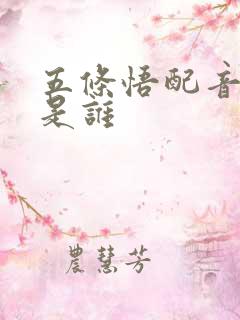 五條悟配音
是誰
農慧芳